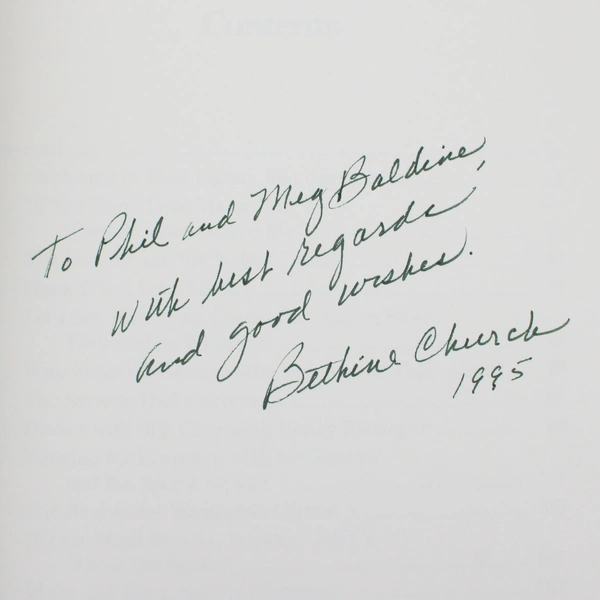 To Phil and Meg Baldine,
With best regards,
and good wishes.
Bethine Church
1995